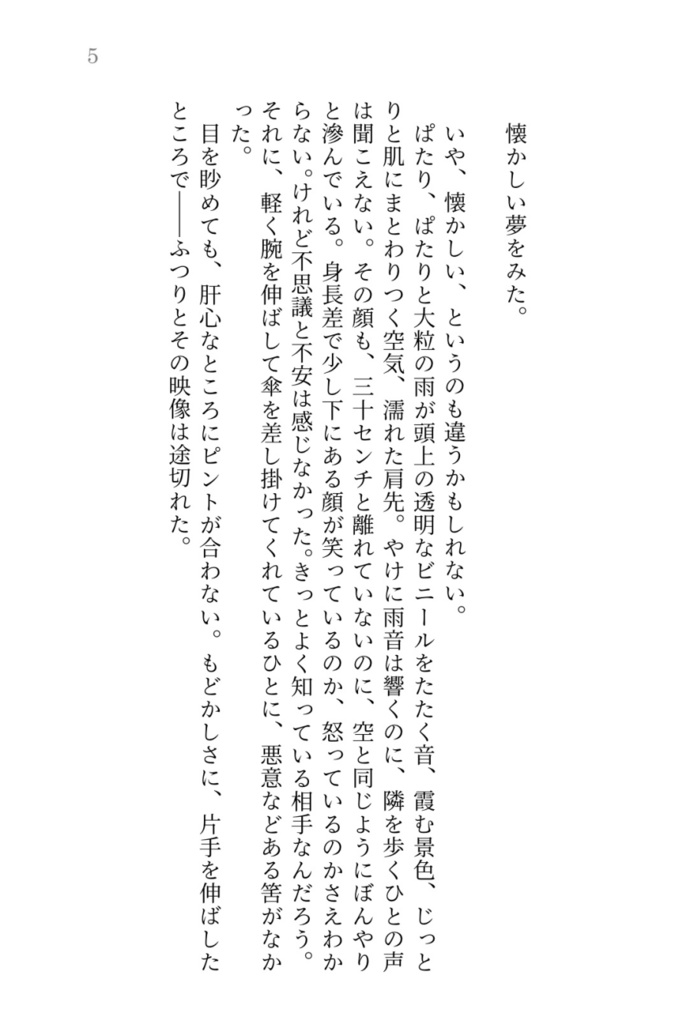 5
懐かしい夢をみた。
いや、懐かしい、というのも違うかもしれない。
ぱたり、ぱたりと大粒の雨が頭上の透明なビニールをたたく音、霞む景色、じっと
りと肌にまとわりつく空気、濡れた肩先。やけに雨音は響くのに、隣を歩くひとの声
は聞こえない。その顔も、三十センチと離れていないのに、空と同じようにぼんやり
と滲んでいる。身長差で少し下にある顔が笑っているのか、怒っているのかさえわか
らない。けれど不思議と不安は感じなかった。きっとよく知っている相手なんだろう。
それに、軽く腕を伸ばして傘を差し掛けてくれているひとに、悪意などある筈がなか
った。
目を眇めても、肝心なところにピントが合わない。もどかしさに、片手を伸ばした
ところで――ふつりとその映像は途切れた。